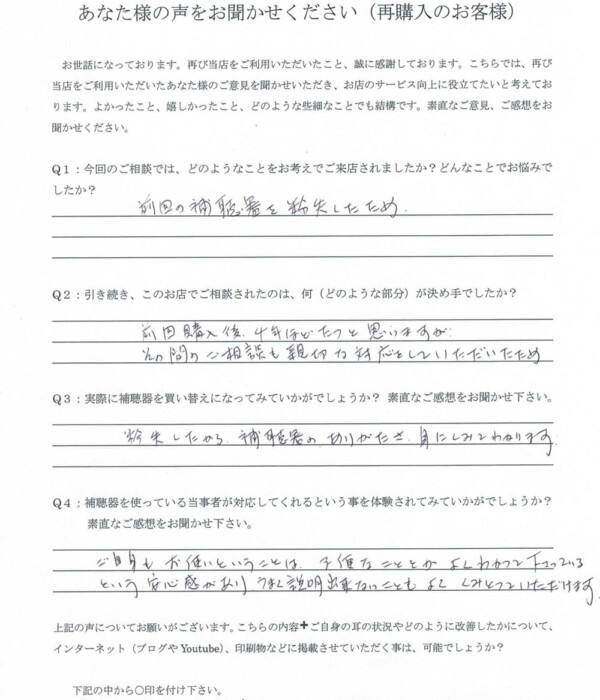 あなた様の声をお聞かせください（再購入のお客様）
お世話になっております。再び当店をご利用いただいたこと、誠に感謝しております。こちらでは、再び
当店をご利用いただいたあなた様のご意見を聞かせいただき、お店のサービス向上に役立てたいと考えてお
ります。よかったこと、嬉しかったこと、どのような些細なことでも結構です。素直なご意見、ご感想をお
聞かせください。
Q1：今回のご相談では、どのようなことをお考えでご来店されましたか？どんなことでお悩みで
したか？
前回の補聴器を紛失したため.
Q2：引き続き、このお店でご相談されたのは、何（どのような部分）が決め手でしたか？
前回購入後、4年ほどたつと思いますが、
その間のご相談も親切な対応をしていただいたため
Q3：実際に補聴器を買い替えになってみていかがでしょうか？ 素直なご感想をお聞かせ下さい。
紛失したから、補聴器の、ありがたさ、身にしみてわかります
Q4：補聴器を使っている当事者が対応してくれるという事を体験されてみていかがでしょうか？
素直なご感想をお聞かせ下さい。
ご自身もお使いということは、不便なこととかよくわかって下さっている
という安心感があり、うまく説明出来ないこともよくくみとっていただけます.
上記の声についてお願いがございます。こちらの内容+ご自身の耳の状況やどのように改善したかについて、
インターネット（ブログやYoutube）、印刷物などに掲載させていただく事は、可能でしょうか？
下記の中から〇印を付け下さい。